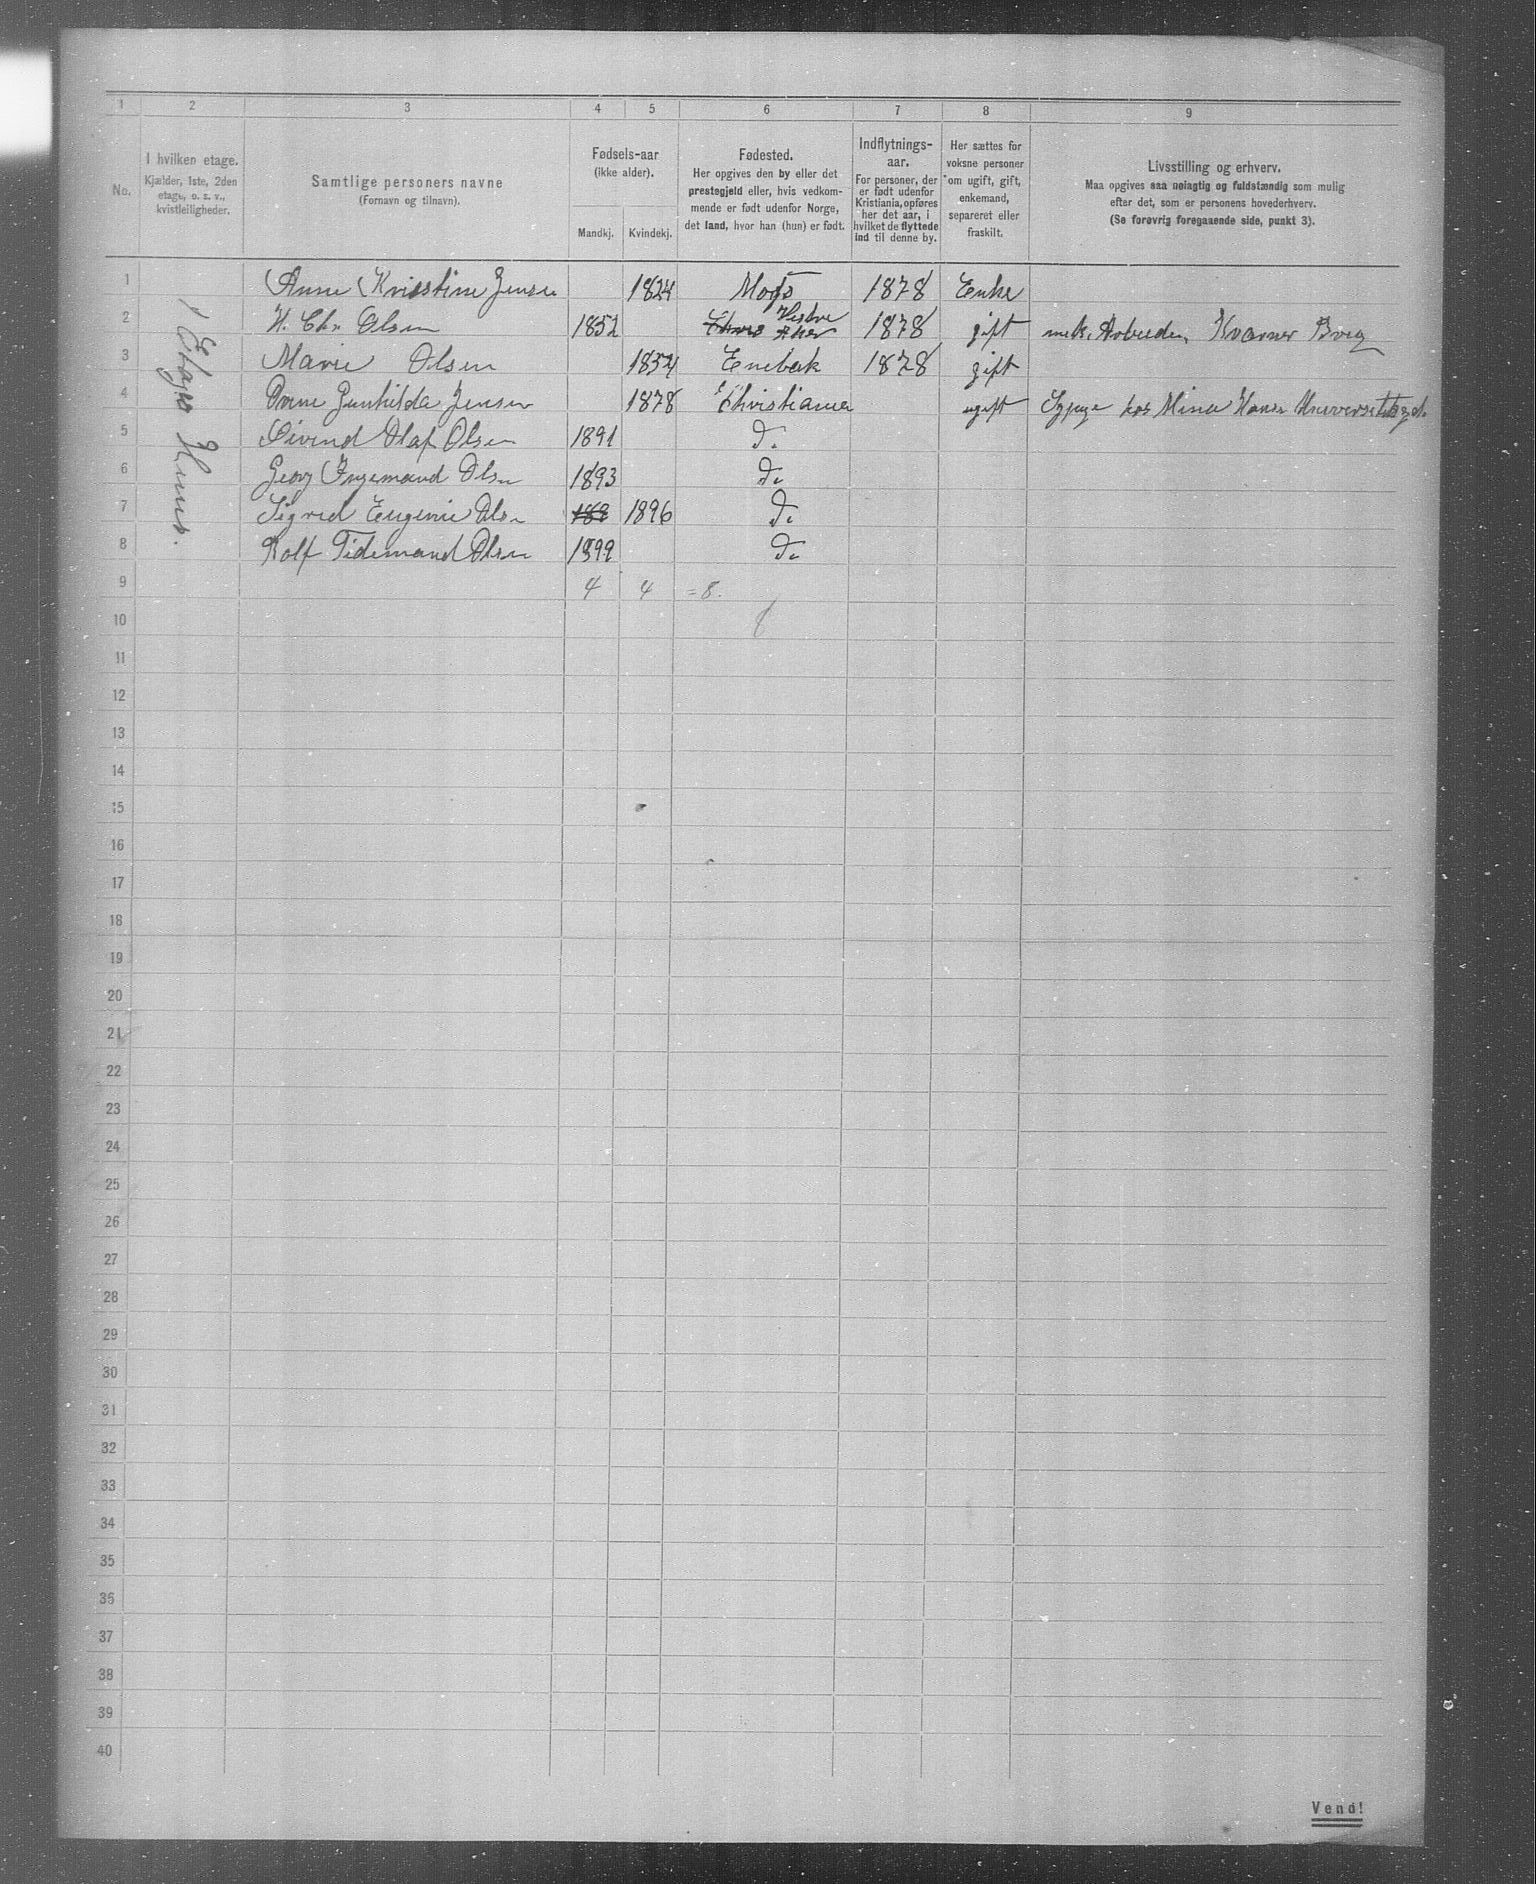 1 2 3 4 5 6 7 8 9
No.
I hvilken etage.
Kjælder, 1ste, 2den
etage, o. s. v.,
kvistleiligheder.
Samtlige personers navne
(Fornavn og tilnavn).
Fødsels-aar
(ikke alder).
Mandkj. Kvindekj.
Fødested.
Her opgives den by eller det
prestegjeld eller, hvis vedkom-
mende er født udenfor Norge,
det land, hvor han (hun) er født.
Indflytnings-
aar.
For personer, der
er født udenfor
Kristiania, opføres
her det aar, i
hvilket de flyttede
ind til denne by.
Her sættes for
voksne personer
om ugift, gift,
enkemand,
separeret eller
fraskilt.
Livsstilling og erhverv.
Maa opgives saa nøiagtig og fuldstændig som mulig
efter det, som er personens hovederhverv.
(Se forøvrig foregaaende side, punkt 3).
1 Etage Huus.
1 Anne Kristine Jensen 1824 Moss 1878 Enke
2 H. Chr Olsen 1852 Vestre Aker 1878 gift mek. Arbeider, Kværner Brug
3 Marie Olsen 1854 Enebak 1878 gift
4 Gunhilda Jensen 1878 Christiania ugift Sypige hos Mina Hansen Universitetsgd.
5 Øivind Olaf Olsen 1891 Do
6 Georg Ingemand Olsen 1893 Do
7 Sigrid Eugenie Olsen 189 1896 Do
8 Rolf Tidemand Olsen 1899 Do
9 4 4 = 8.
10 8
11
12
13
14
15
16
17
18
19
20
21
22
23
24
25
26
27
28
29
30
31
32
33
34
35
36
37
38
39
40
Vend!